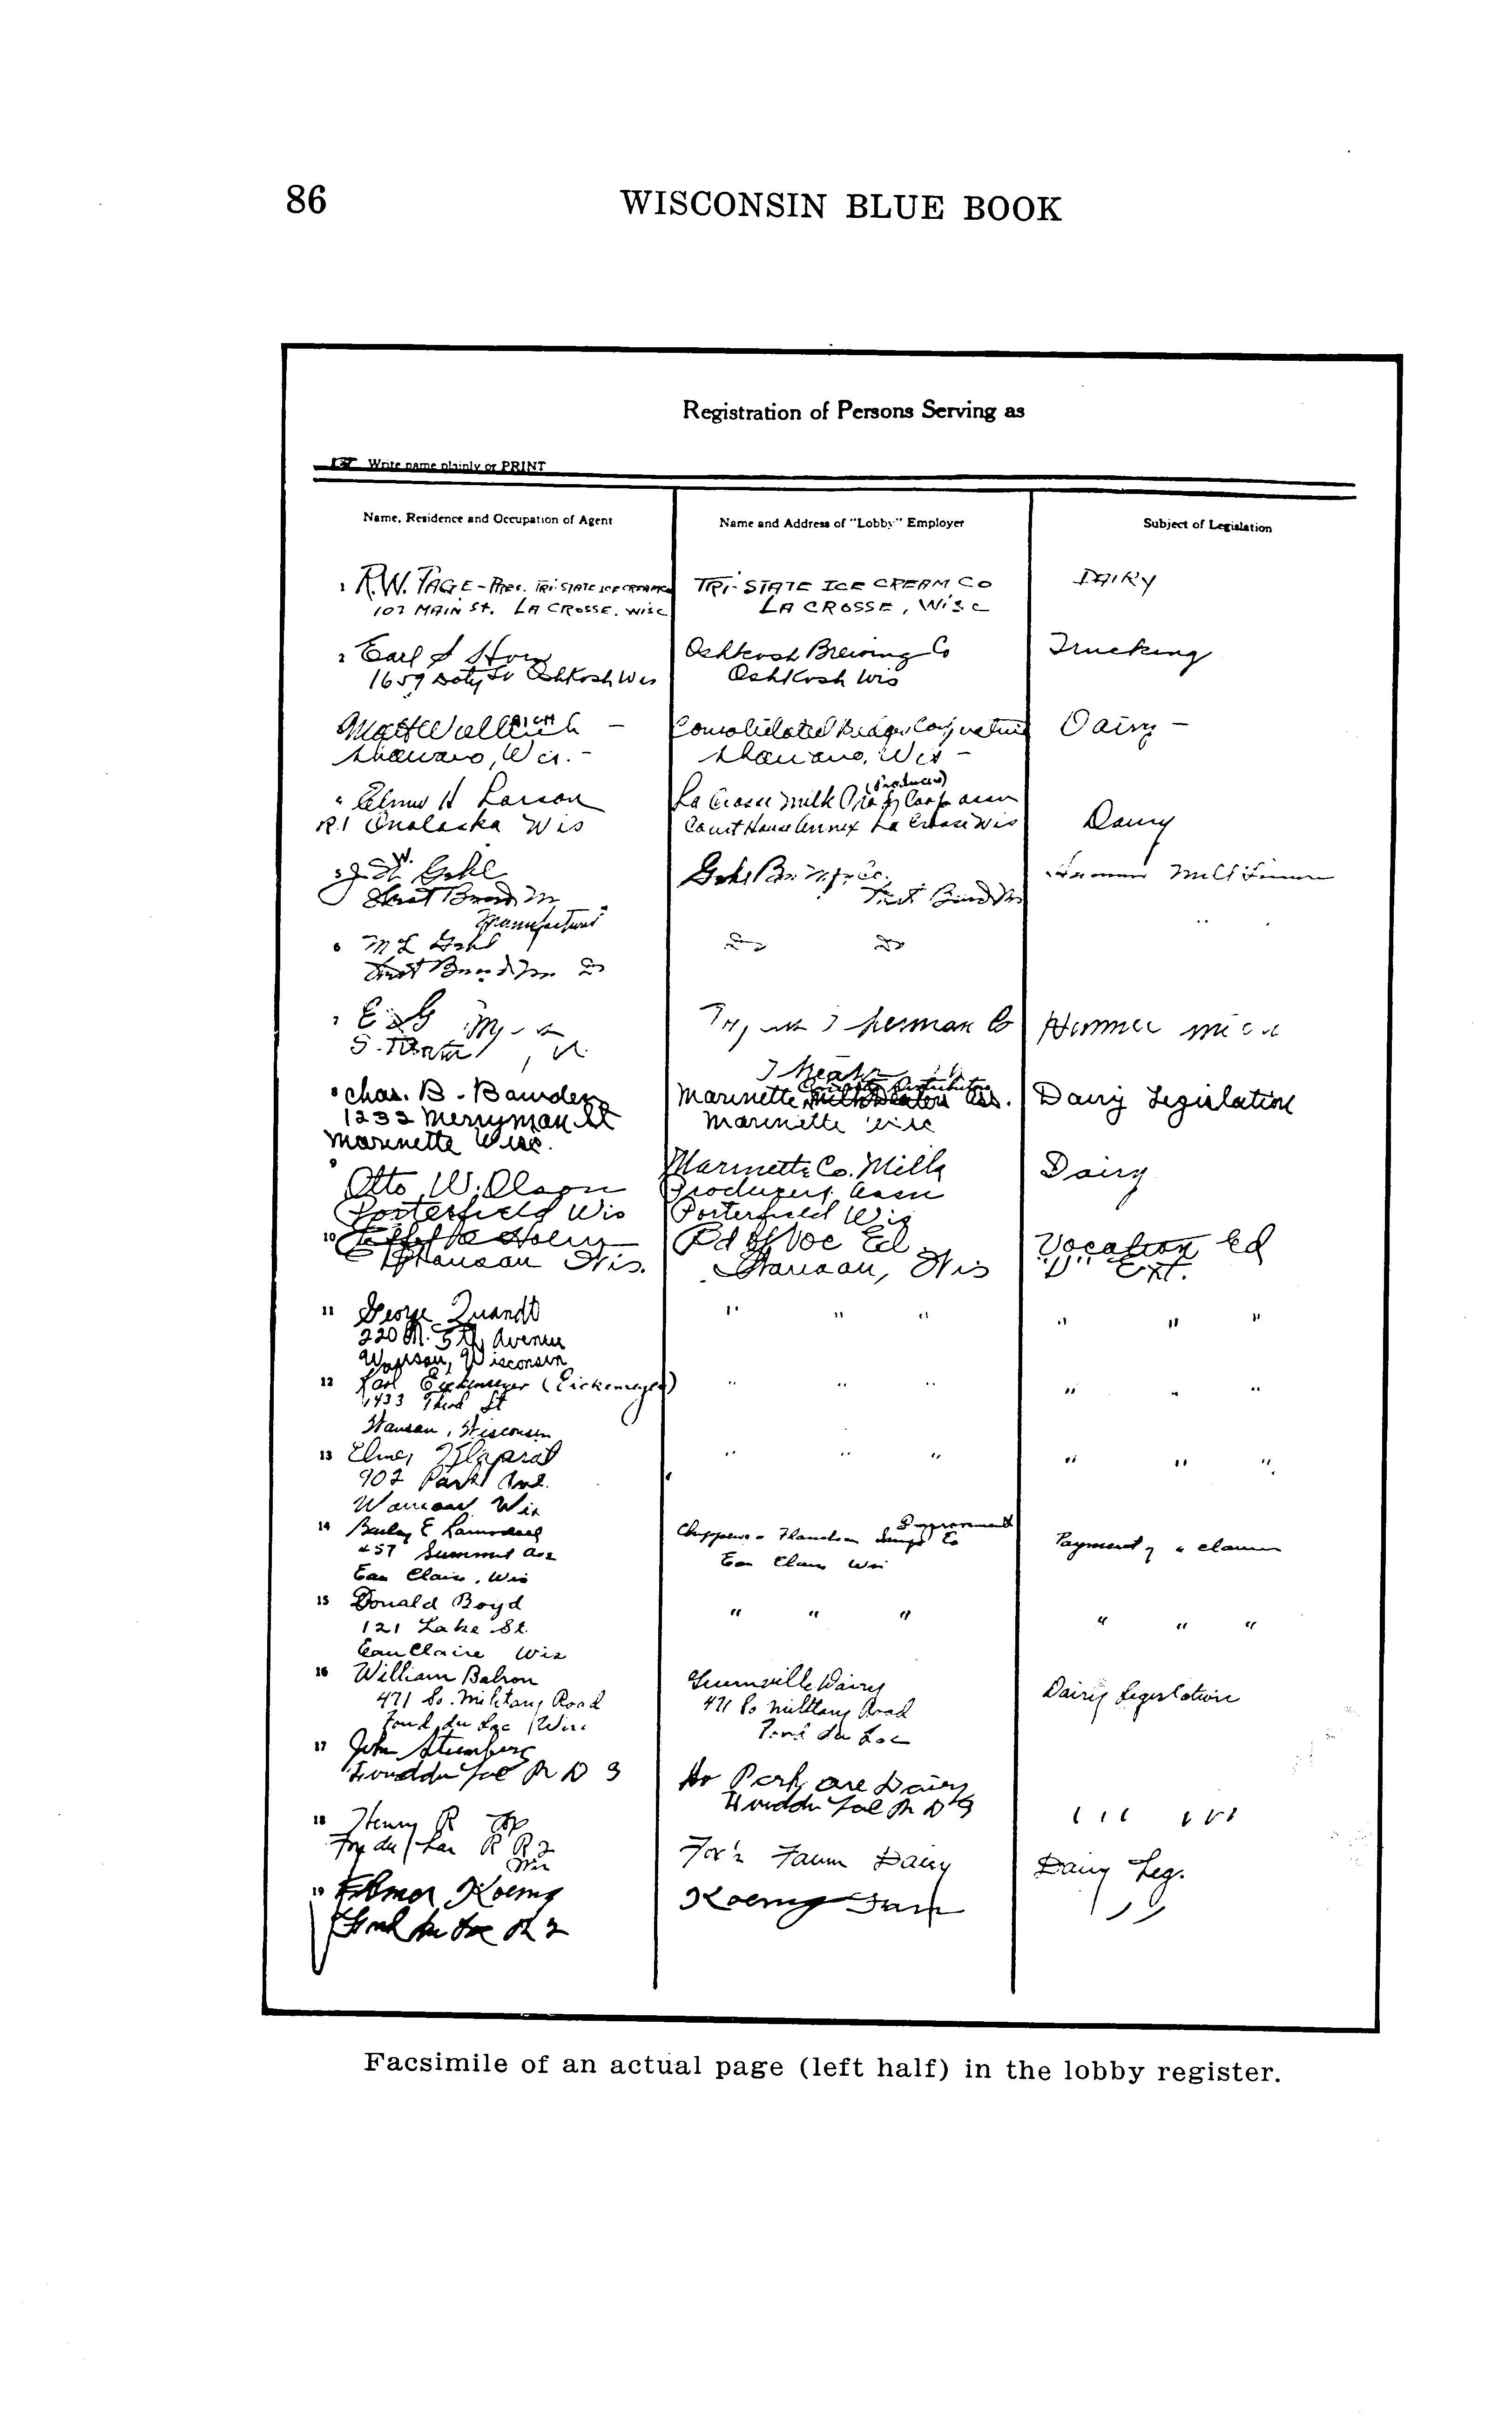 86 WISCONSIN BLUE BOOK
Registration of Persons Serving as
Write name plainly or PRINT
Name, Residence and Occupation of Agent
Name and Address of "Lobby" Employer
Subject of Legislation
1 R.W. PAGE - PRES. TRI-STATE ICE CREAM CO
107 MAIN ST. LA CROSSE, WISC
TRI-STATE ICE CREAM CO
LA CROSSE, WISC
DAIRY
2 Earl
1659 Doty St Oshkosh Wis
Oshkosh Brewing Co
Oshkosh Wis
Trucking
Matt Wallrich -
Shawano, Wis. -
Consolidated
Shawano, Wis -
Dairy -
4 Elmer H Larson
R.1 Onalaska Wis
La Crosse Milk (Producers) Coop assn
Court House Annex La Crosse Wis
Dairy
5 J. W. Gehl
West Bend
Manufacturer
Gehl Bros Mfg Co.
West Bend
Hammer Mill
6 M L Gehl
West Bend
Do Do
7
Co
Hammer
8 Chas. B. Bauder
1232 Merryman St
Marinette Wisc.
Marinette Ass.
Marinette Wisc
Dairy Legislation
9
Otto W. Olson
Porterfield Wis
Marinette Co. Milk
Producers Assn
Porterfield Wis
Dairy
10
Wausau Wis.
Bd of Voc Ed
Wausau, Wis
Vocation Ed
" Ext.
11 George Quandt
220 N. 5th Avenue
Wausau, Wisconsin
" " "
" " "
12 Karl Eickemeyer (Eickemeyer)
1433 Third St
Wausau, Wisconsin
" " "
" " "
13 Elmer Klaprat
902 Park Ave.
Wausau Wis
" " "
" " "
14 Bailey E Ramsdell
457 Summit Ave
Eau Claire, Wis
Chippewa - Flambeau Improvement Co
Eau Claire Wis
Payment of a claim
15 Donald Boyd
121 Lake St.
Eau Claire Wis
" " "
" " "
16 William Balson
471 So. Military Road
Fond du Lac, Wisc
Dairy
471 So Military Road
Fond du Lac
Dairy Legislation
17 John
Fond du Lac R D 3
Park ave Dairy
Fond du Lac R D 3
" " " " " "
18 Henry R Fox
Fon du Lac R R 2
Wis
Fox's Farm Dairy
Dairy Leg.
19 Elmer Koenig
Fond du Lac R 2
Koenig Farm
" "
Facsimile of an actual page (left half) in the lobby register.